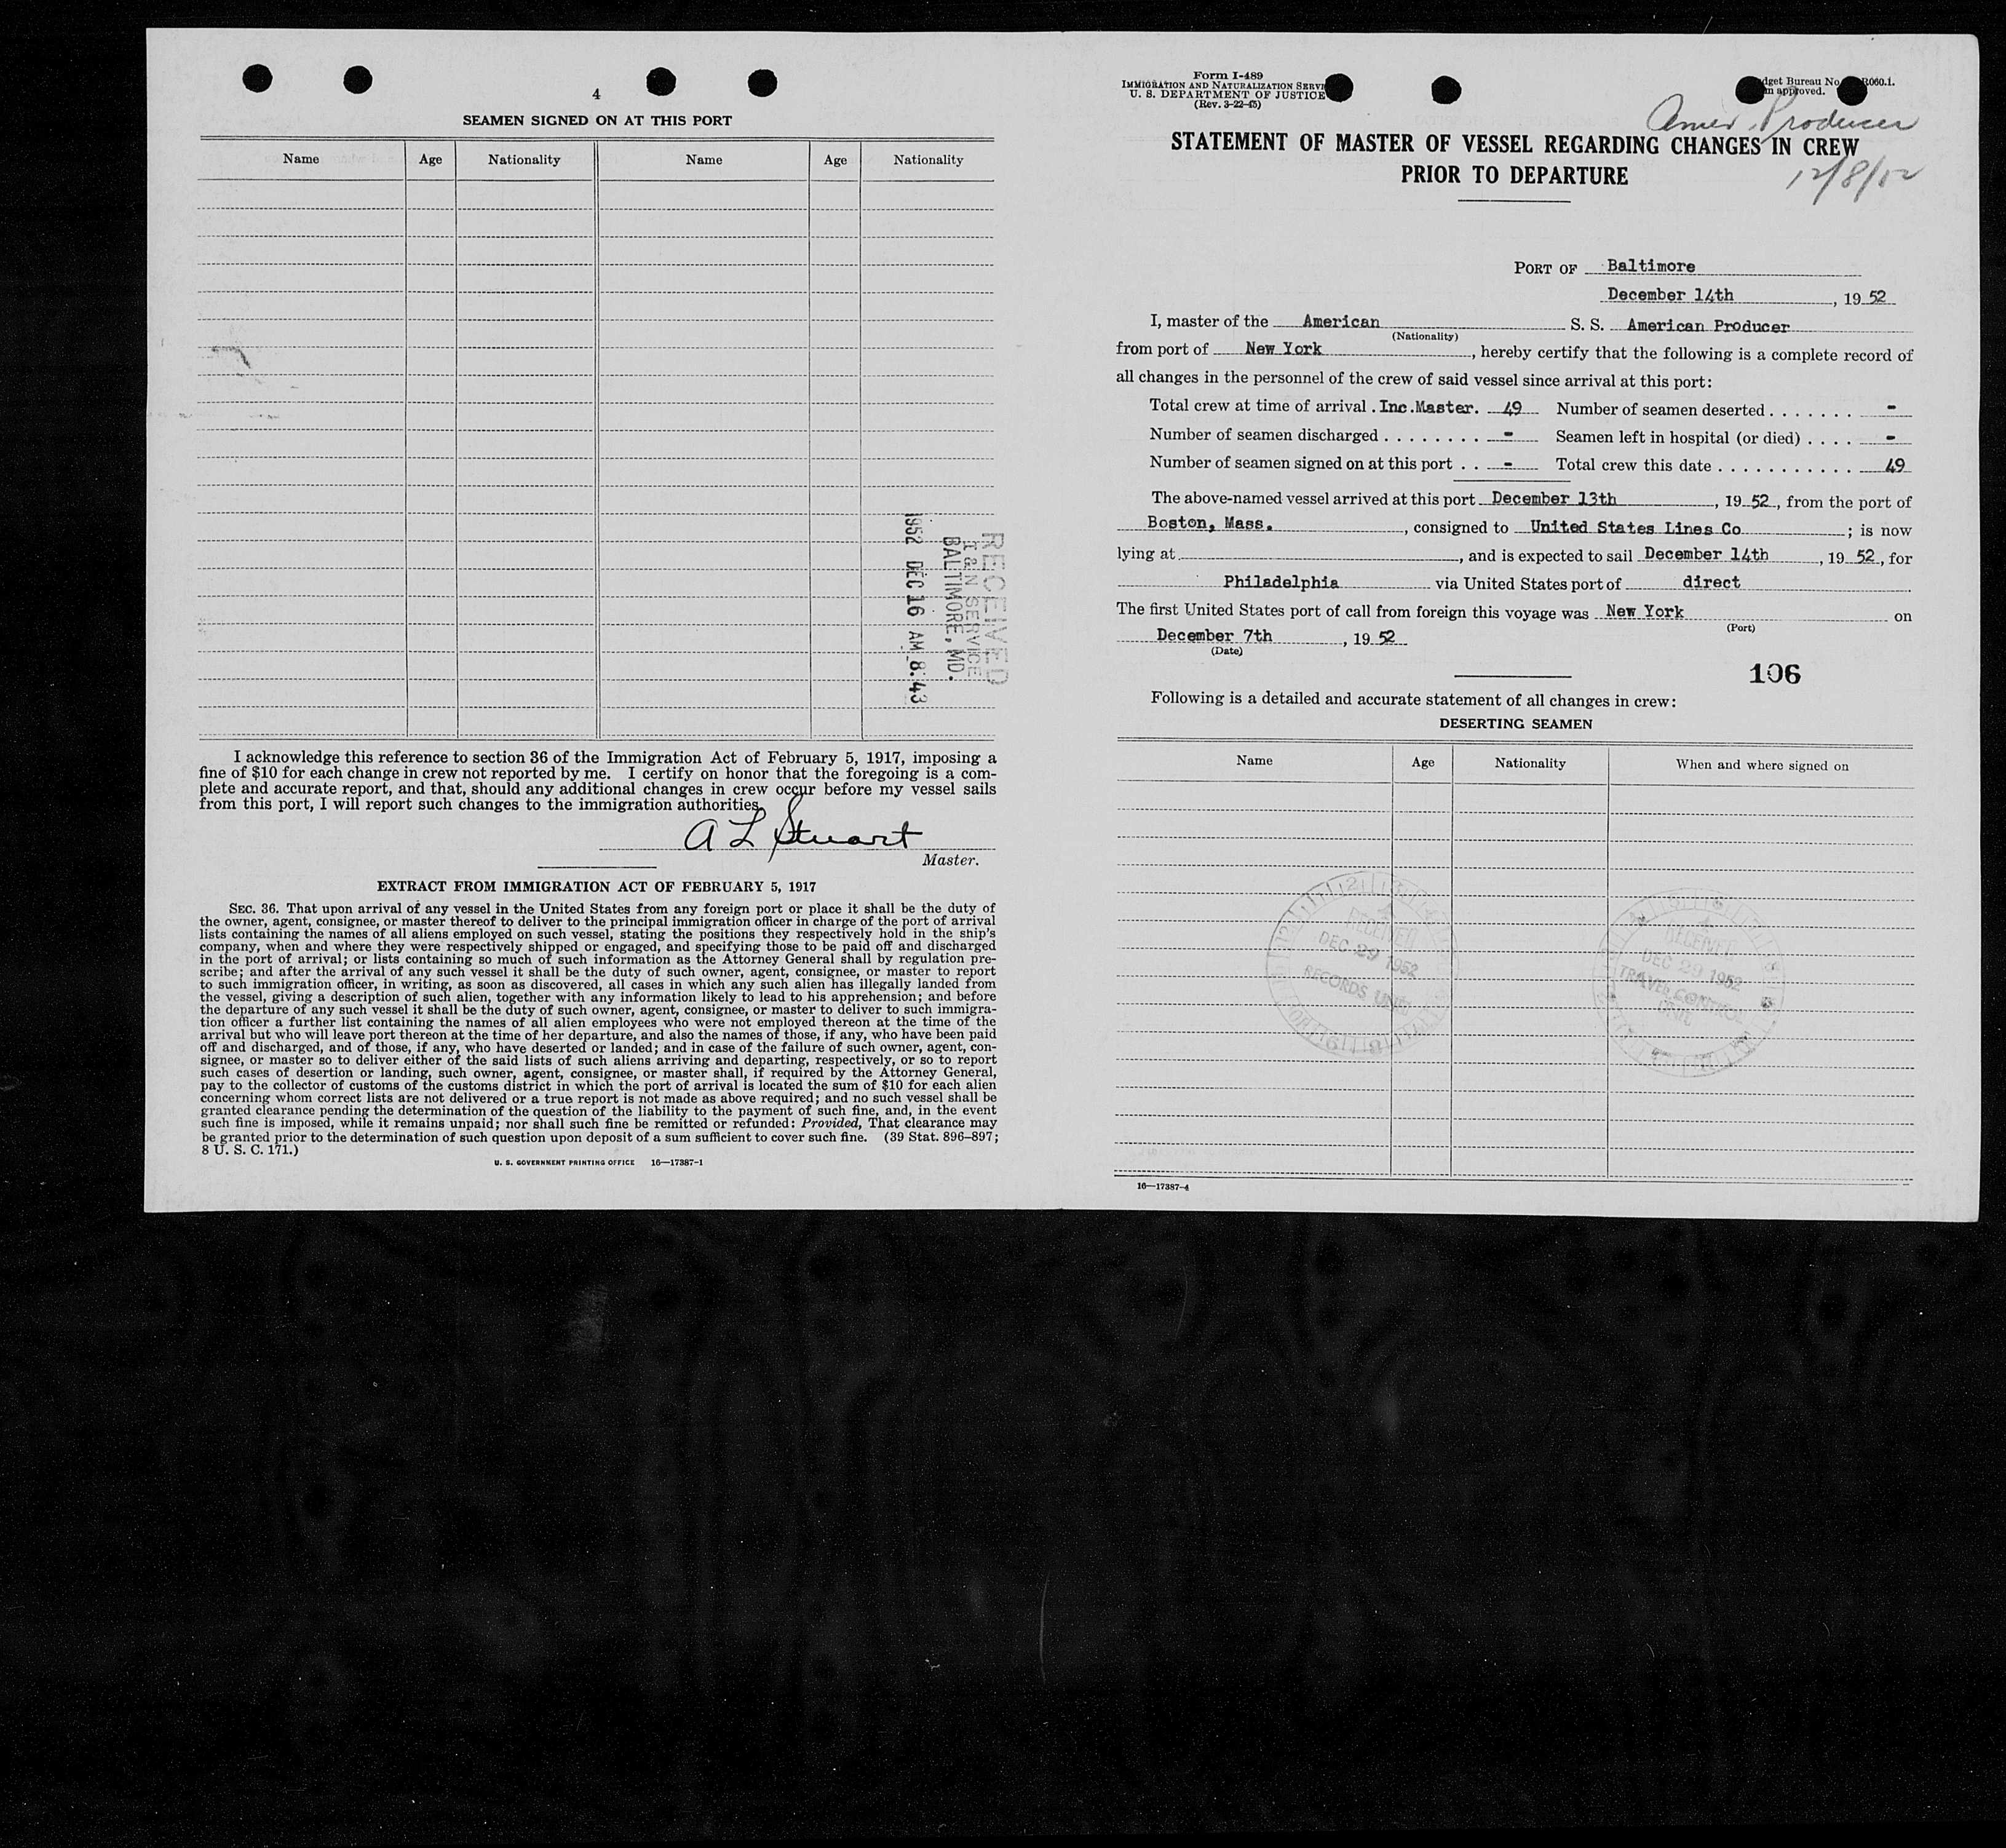 4
SEAMEN SIGNED ON AT THIS PORT
Name Age Nationality Name Age Nationality
RECEIVED
I & N SERVICE
BALTIMORE, MD.
1952 DEC 16 AM 8:43
I acknowledge this reference to section 36 of the Immigration Act of February 5, 1917, imposing a
fine of $10 for each change in crew not reported by me. I certify on honor that the foregoing is a com-
plete and accurate report, and that, should any additional changes in crew occur before my vessel sails
from this port, I will report such changes to the immigration authorities.
A L Stuart
Master.
EXTRACT FROM IMMIGRATION ACT OF FEBRUARY 5, 1917
SEC. 36. That upon arrival of any vessel in the United States from any foreign port or place it shall be the duty of
the owner, agent, consignee, or master thereof to deliver to the principal immigration officer in charge of the port of arrival
lists containing the names of all aliens employed on such vessel, stating the positions they respectively hold in the ship's
company, when and where they were respectively shipped or engaged, and specifying those to be paid off and discharged
in the port of arrival; or lists containing so much of such information as the Attorney General shall by regulation pre-
scribe; and after the arrival of any such vessel it shall be the duty of such owner, agent, consignee, or master to report
to such immigration officer, in writing, as soon as discovered, all cases in which any such alien has illegally landed from
the vessel, giving a description of such alien, together with any information likely to lead to his apprehension; and before
the departure of any such vessel it shall be the duty of such owner, agent, consignee, or master to deliver to such immigra-
tion officer a further list containing the names of all alien employees who were not employed thereon at the time of the
arrival but who will leave port thereon at the time of her departure, and also the names of those, if any, who have been paid
off and discharged, and of those, if any, who have deserted or landed; and in case of the failure of such owner, agent, con-
signee, or master so to deliver either of the said lists of such aliens arriving and departing, respectively, or so to report
such cases of desertion or landing, such owner, agent, consignee, or master shall, if required by the Attorney General,
pay to the collector of customs of the customs district in which the port of arrival is located the sum of $10 for each alien
concerning whom correct lists are not delivered or a true report is not made as above required; and no such vessel shall be
granted clearance pending the determination of the question of the liability to the payment of such fine, and, in the event
such fine is imposed, while it remains unpaid; nor shall such fine be remitted or refunded: Provided, That clearance may
be granted prior to the determination of such question upon deposit of a sum sufficient to cover such fine. (39 Stat. 896–897;
8 U. S. C. 171.)
U. S. GOVERNMENT PRINTING OFFICE 16—17387-1
Form I-489
IMMIGRATION AND NATURALIZATION
U. S. DEPARTMENT OF JUSTICE
(Rev. 3-22-45)
dget Bureau No. R060.1.
approved.
Amer. Producer
STATEMENT OF MASTER OF VESSEL REGARDING CHANGES IN CREW
PRIOR TO DEPARTURE
12/8/52
PORT OF Baltimore
December 14th, 19 52
I, master of the American S. S. American Producer
(Nationality)
from port of New York, hereby certify that the following is a complete record of
all changes in the personnel of the crew of said vessel since arrival at this port:
Total crew at time of arrival . Inc.Master. 49 Number of seamen deserted . . . . . . . -
Number of seamen discharged . . . . . . . . - Seamen left in hospital (or died) . . . . -
Number of seamen signed on at this port . . - Total crew this date . . . . . . . . . . . 49
The above-named vessel arrived at this port December 13th, 19 52, from the port of
Boston, Mass., consigned to United States Lines Co; is now
lying at , and is expected to sail December 14th, 19 52, for
Philadelphia via United States port of direct
The first United States port of call from foreign this voyage was New York on
(Port)
December 7th, 19 52
(Date)
106
Following is a detailed and accurate statement of all changes in crew:
DESERTING SEAMEN
Name Age Nationality When and where signed on
RECEIVED
DEC 29 1952
RECORDS UNIT
RECEIVED
DEC 29 1952
TRAVEL CONTROL
UNIT
16—17387-4